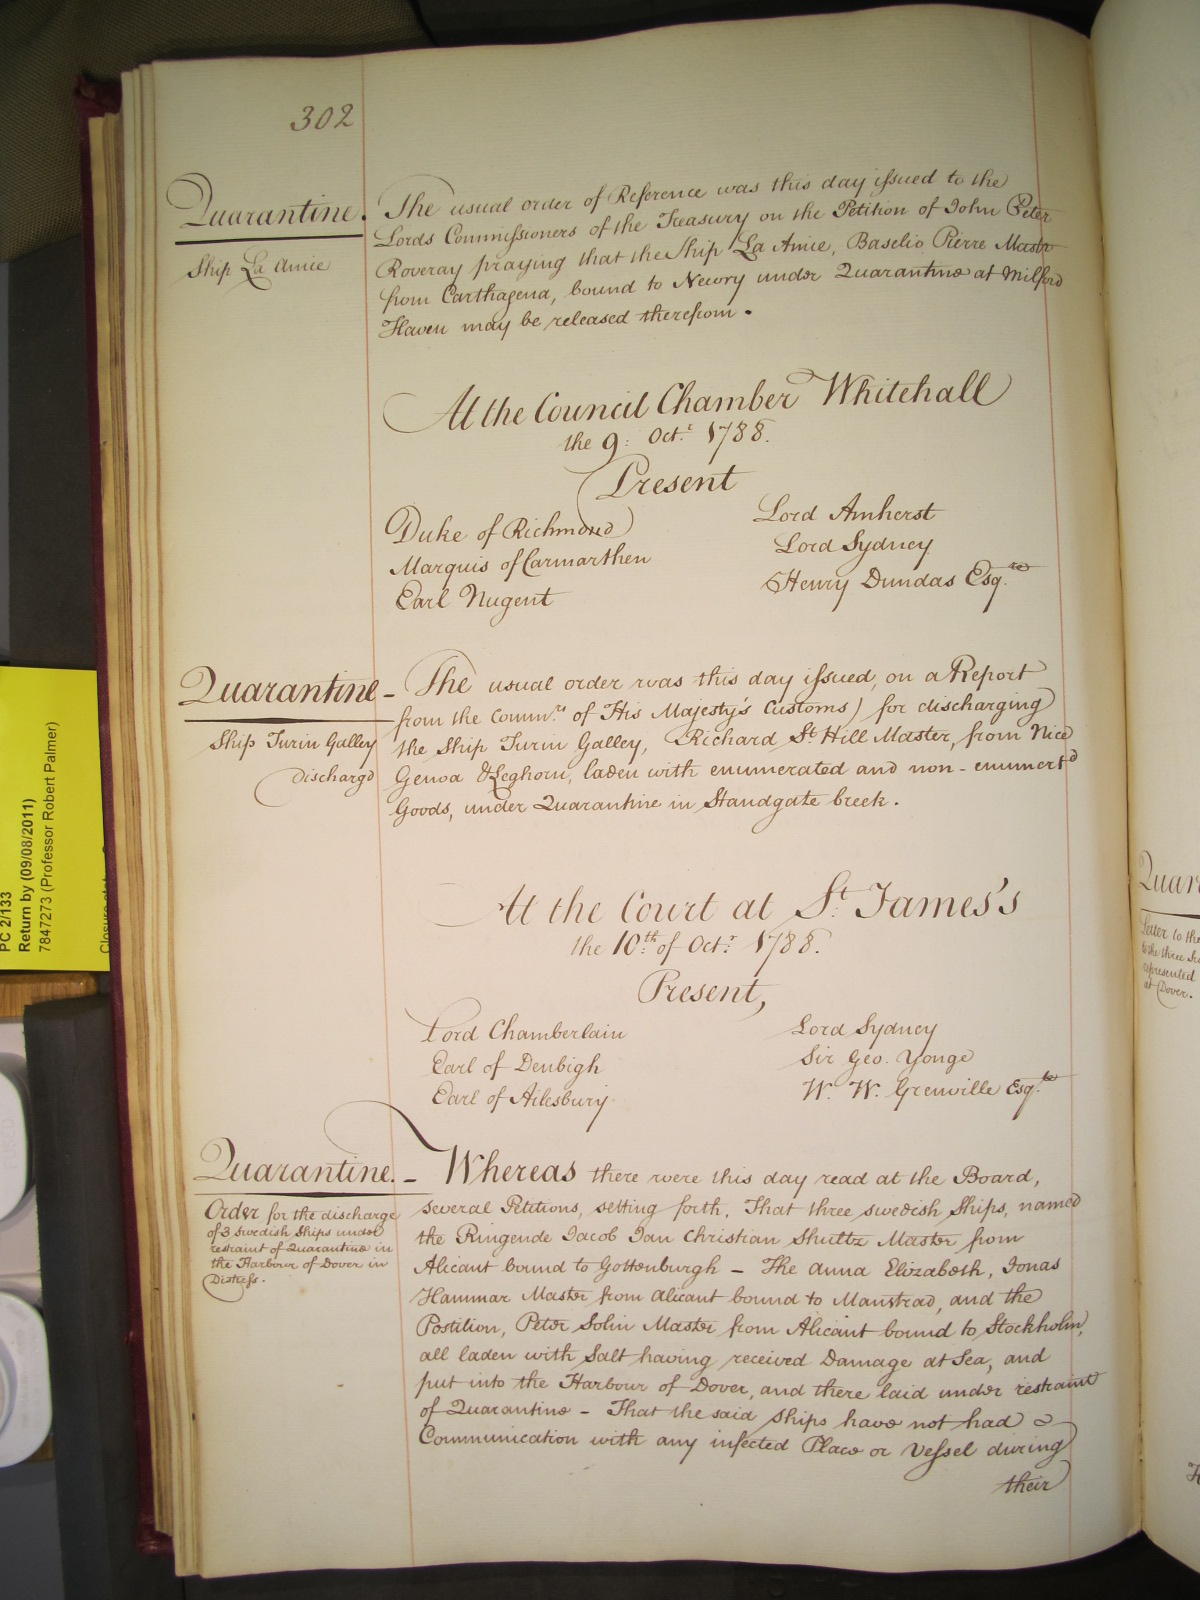 302
Quarantine.
Ship La Amie
The usual order of Reference was this day issued to the
Lords Commissioners of the Treasury on the Petition of John Peter
Roveray praying that the Ship La Amie, Baselio Pierre Mastr
from Carthagena, bound to Newry under Quarantine at Milford
Haven may be released therefrom.
At the Council Chamber Whitehall
the 9: Oct.r 1788.
Present
Duke of Richmond
Marquis of Carmarthen
Earl Nugent
Lord Amherst
Lord Sydney
Henry Dundas Esq.re
Quarantine -
Ship Turin Galley
Dischargd
The usual order was this day issued, on a Report
from the Comm.rs of His Majesty's Customs) for discharging
the Ship Turin Galley, Richard St. Hill Master, from Nice
Genoa & Leghorn, laden with enumerated and non-enumert'd
Goods, under Quarantine in Standgate Creek.
At the Court at St. James's
the 10th of Oct.r 1788.
Present,
Lord Chamberlain
Earl of Denbigh
Earl of Ailesbury
Lord Sydney
Sir Geo. Yonge
W. W. Grenville Esq.re
Quarantine. -
Order for the discharge
of 3 Swedish Ships under
restraint of Quarantine in
the Harbour of Dover in
Distress.
Whereas there were this day read at the Board,
several Petitions, setting forth, That three swedish Ships, named
the Ringende Jacob Jan Christian Shultz Master from
Alicant bound to Gottenburgh - The Anna Elizabeth, Jonas
Hammar Master from Alicant bound to Manstrad, and the
Postilion, Peter Solin Master from Alicant bound to Stockholm,
all laden with Salt having received Damage at Sea, and
put into the Harbour of Dover, and there laid under restraint
of Quarantine - That the said Ships have not had
Communication with any infected Place or Vessel during
their
PC 2/133
Return by (09/08/2011)
7847273 (Professor Robert Palmer)
Quar
Letter to the
to the three
represented
at Dover.